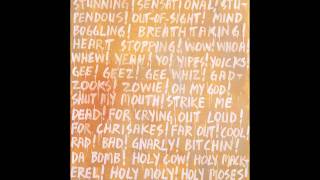 STUNNING! SENSATIONAL! STU-
PENDOUS! OUT-OF-SIGHT! MIND
BOGGLING! BREATH TAKING!
HEART STOPPING! WOW! WHOA!
WHEW! YEAH! YO! YIPES! YOICKS!
GEE! GEEZ! GEE WHIZ! GAD-
ZOOKS! ZOWIE! OH MY GOD!
SHUT MY MOUTH! STRIKE ME
DEAD! FOR CRYING OUT LOUD!
FOR CHRISAKES! FAR OUT! COOL!
RAD! BAD! GNARLY! BITCHIN'!
DA BOMB! HOLY COW! HOLY MACK-
EREL! HOLY MOLY! HOLY MOSES!